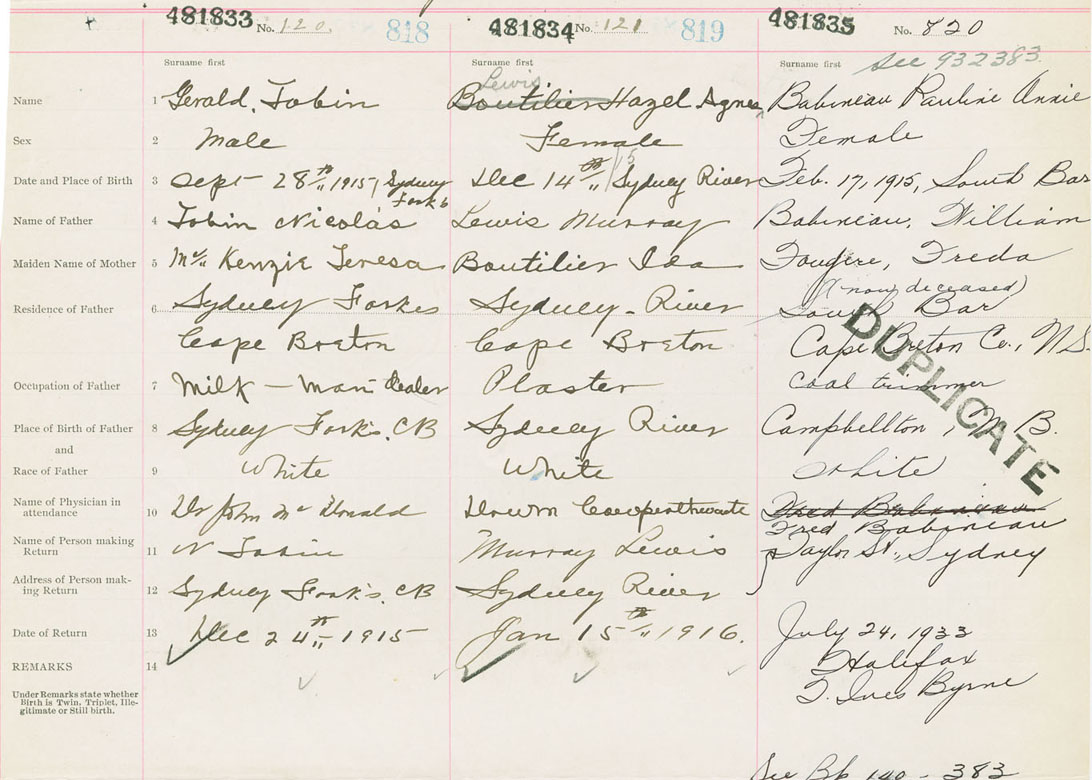 481833 No. 120. 818
481834 No. 121 819
481835 No. 820
see 932383.
Surname first Surname first Surname first
Lewis
Name 1 Gerald, Tobin Boutilier Hazel Agnes Babineau Pauline Annie
Sex 2 Male Female Female
Date and Place of Birth 3 Sept 28th 1915, Sydney Forks Dec 14th 15 Sydney River Feb. 17, 1915, South Bar
Name of Father 4 Tobin Nicolas Lewis Murray Babineau, William
Maiden Name of Mother 5 Mc Kenzie Teresa Boutilier Ida Fougere, Freda
(now deceased)
Residence of Father 6 Sydney Forkes Sydney River South Bar
Cape Breton Cape Breton Cape Breton Co., N.S.
Occupation of Father 7 Milk - Man dealer Plaster Coal trimmer
Place of Birth of Father 8 Sydney Forks, CB Sydney River Campbellton, N.B.
and
Race of Father 9 White White White
DUPLICATE
Name of Physician in
attendance 10 Dr John Mc Donald Fred Babineau
Name of Person making
Return 11 N Tobin Murray Lewis Fred Babineau
Taylor St., Sydney
Address of Person mak-
ing Return 12 Sydney Forks, CB Sydney River
Date of Return 13 Dec 24th 1915 Jan 15th 1916. July 24, 1933
REMARKS 14 Halifax
F. Ines Byrne
Under Remarks state whether
Birth is Twin, Triplet, Ille-
gitimate or Still birth.
See Bk 140 - 383